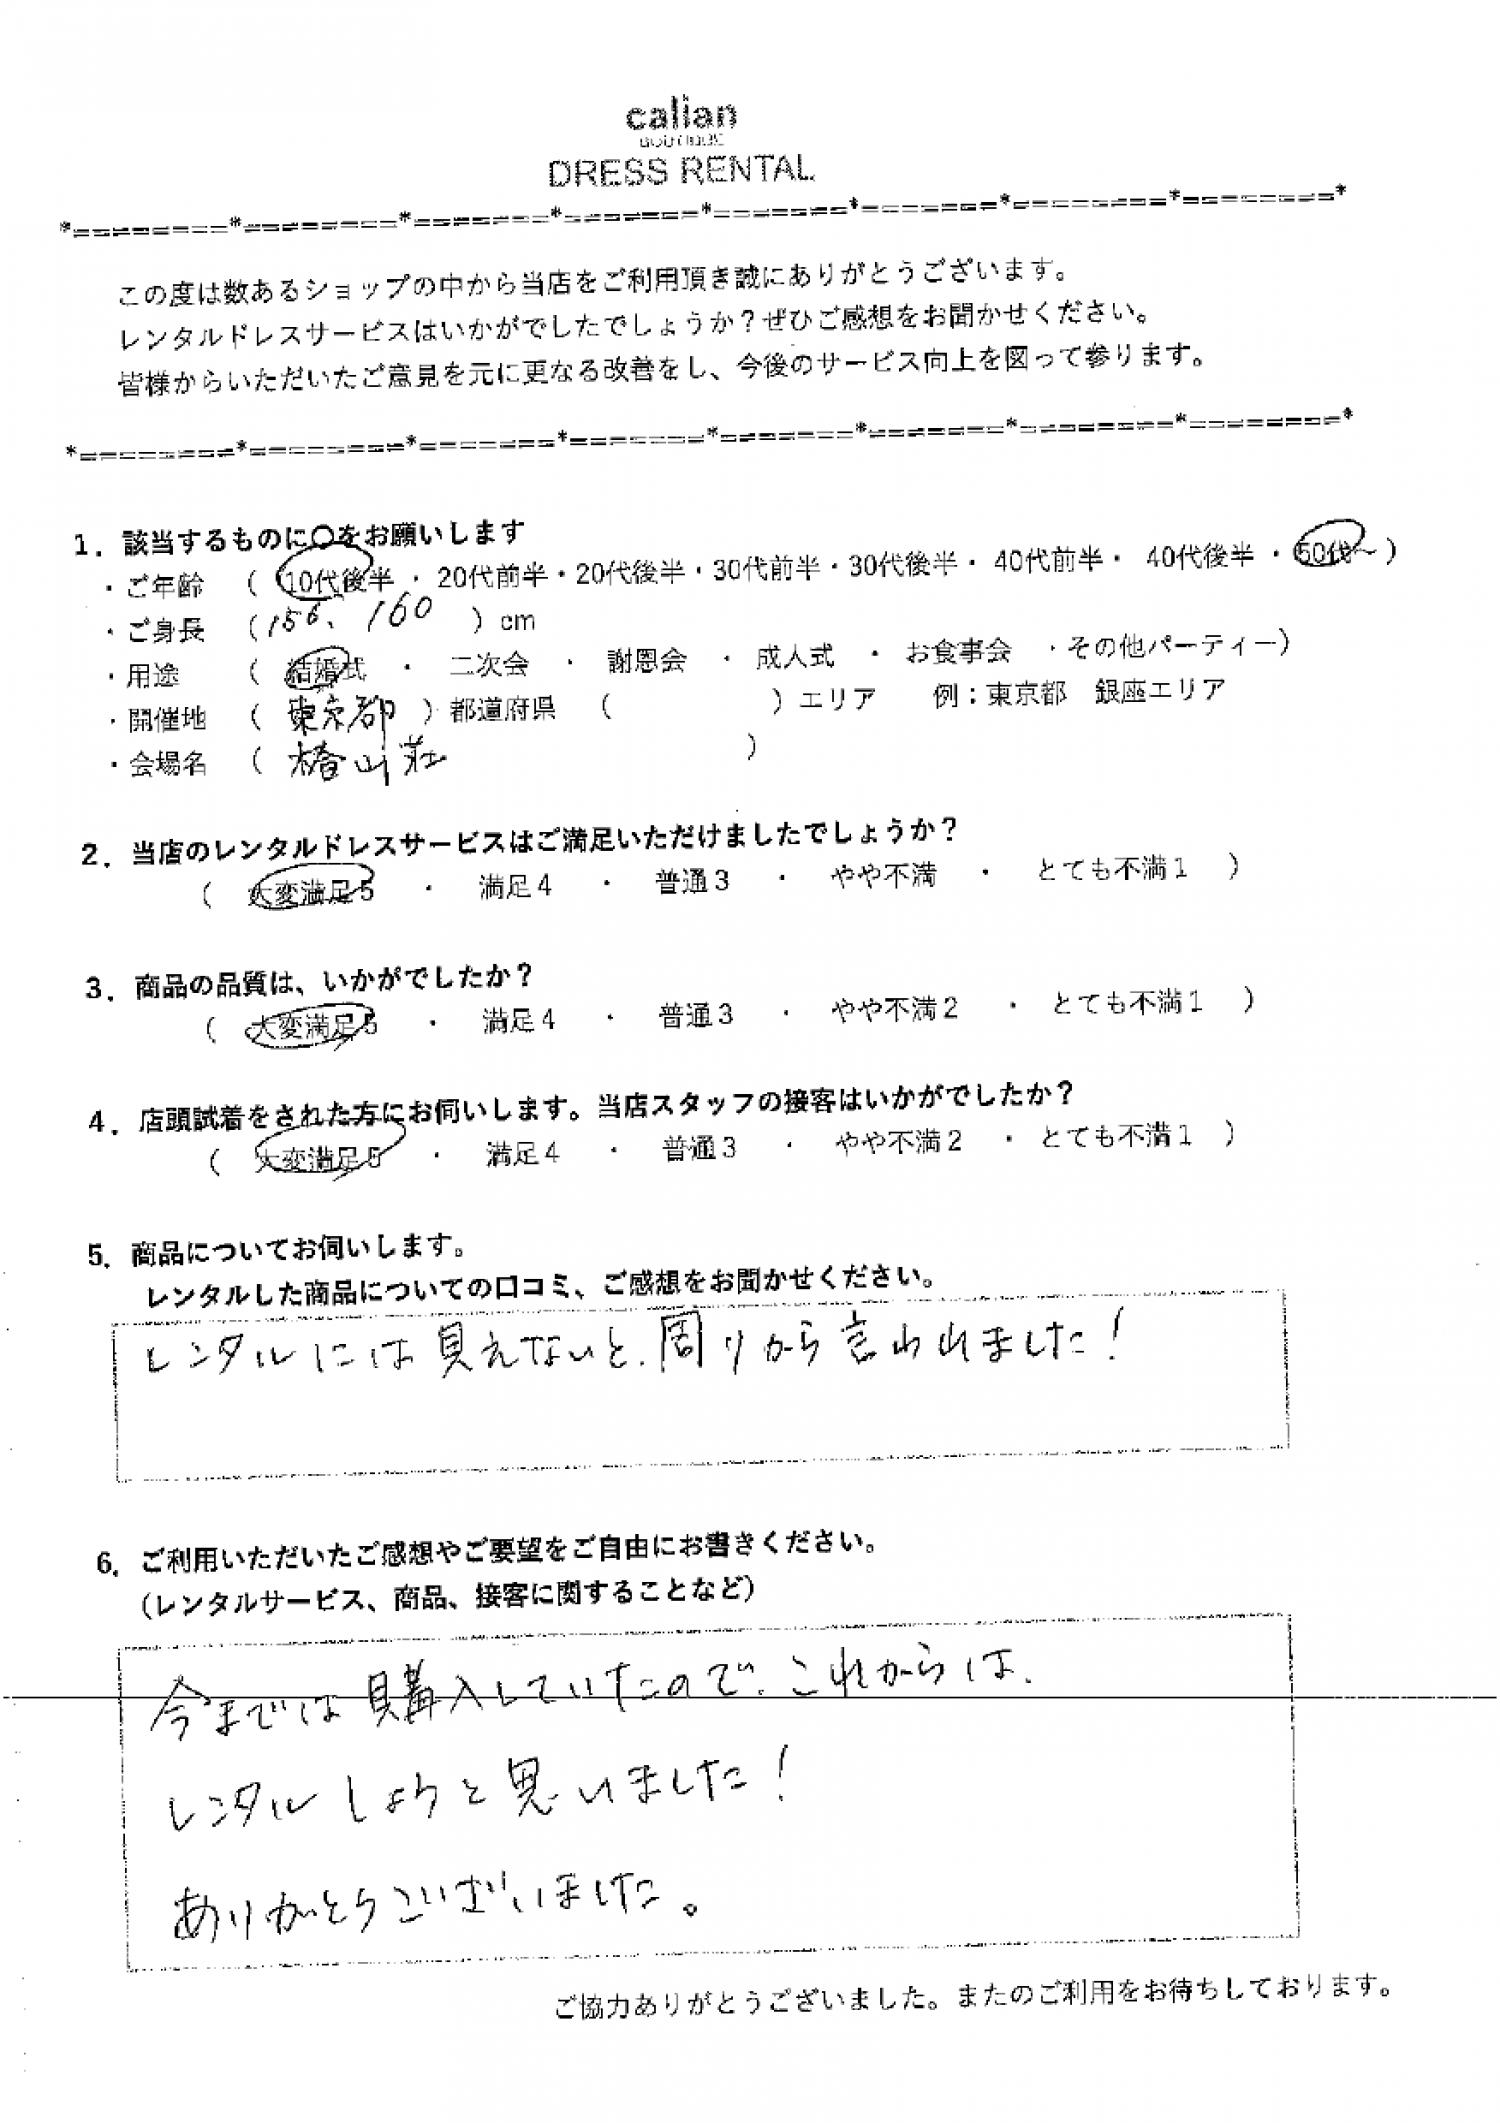 calian
BOUTIQUE
DRESS RENTAL
*========*========*=======*=======*=======*=======*========*========*
この度は数あるショップの中から当店をご利用頂き誠にありがとうございます。
レンタルドレスサービスはいかがでしたでしょうか？ぜひご感想をお聞かせください。
皆様からいただいたご意見を元に更なる改善をし、今後のサービス向上を図って参ります。
*========*========*=======*=======*=======*=======*========*========*
1．該当するものに〇をお願いします
・ご年齢 （ 10代後半 ・ 20代前半・20代後半・30代前半・30代後半・ 40代前半・ 40代後半 ・ 50代～ ）
・ご身長 （156、160 ）cm
・用途 （ 結婚式 ・ 二次会 ・ 謝恩会 ・ 成人式 ・ お食事会 ・その他パーティー）
・開催地 （ 東京都 ）都道府県 （ ）エリア 例：東京都 銀座エリア
・会場名 （ 椿山荘 ）
2．当店のレンタルドレスサービスはご満足いただけましたでしょうか？
（ 大変満足5 ・ 満足4 ・ 普通3 ・ やや不満 ・ とても不満1 ）
3．商品の品質は、いかがでしたか？
（ 大変満足5 ・ 満足4 ・ 普通3 ・ やや不満2 ・ とても不満1 ）
4．店頭試着をされた方にお伺いします。当店スタッフの接客はいかがでしたか？
（ 大変満足5 ・ 満足4 ・ 普通3 ・ やや不満2 ・ とても不満1 ）
5．商品についてお伺いします。
レンタルした商品についての口コミ、ご感想をお聞かせください。
レンタルには見えないと、周りから言われました！
6．ご利用いただいたご感想やご要望をご自由にお書きください。
（レンタルサービス、商品、接客に関することなど）
今までは購入していたので、これからは、
レンタルしようと思いました！
ありがとうございました。
ご協力ありがとうございました。またのご利用をお待ちしております。